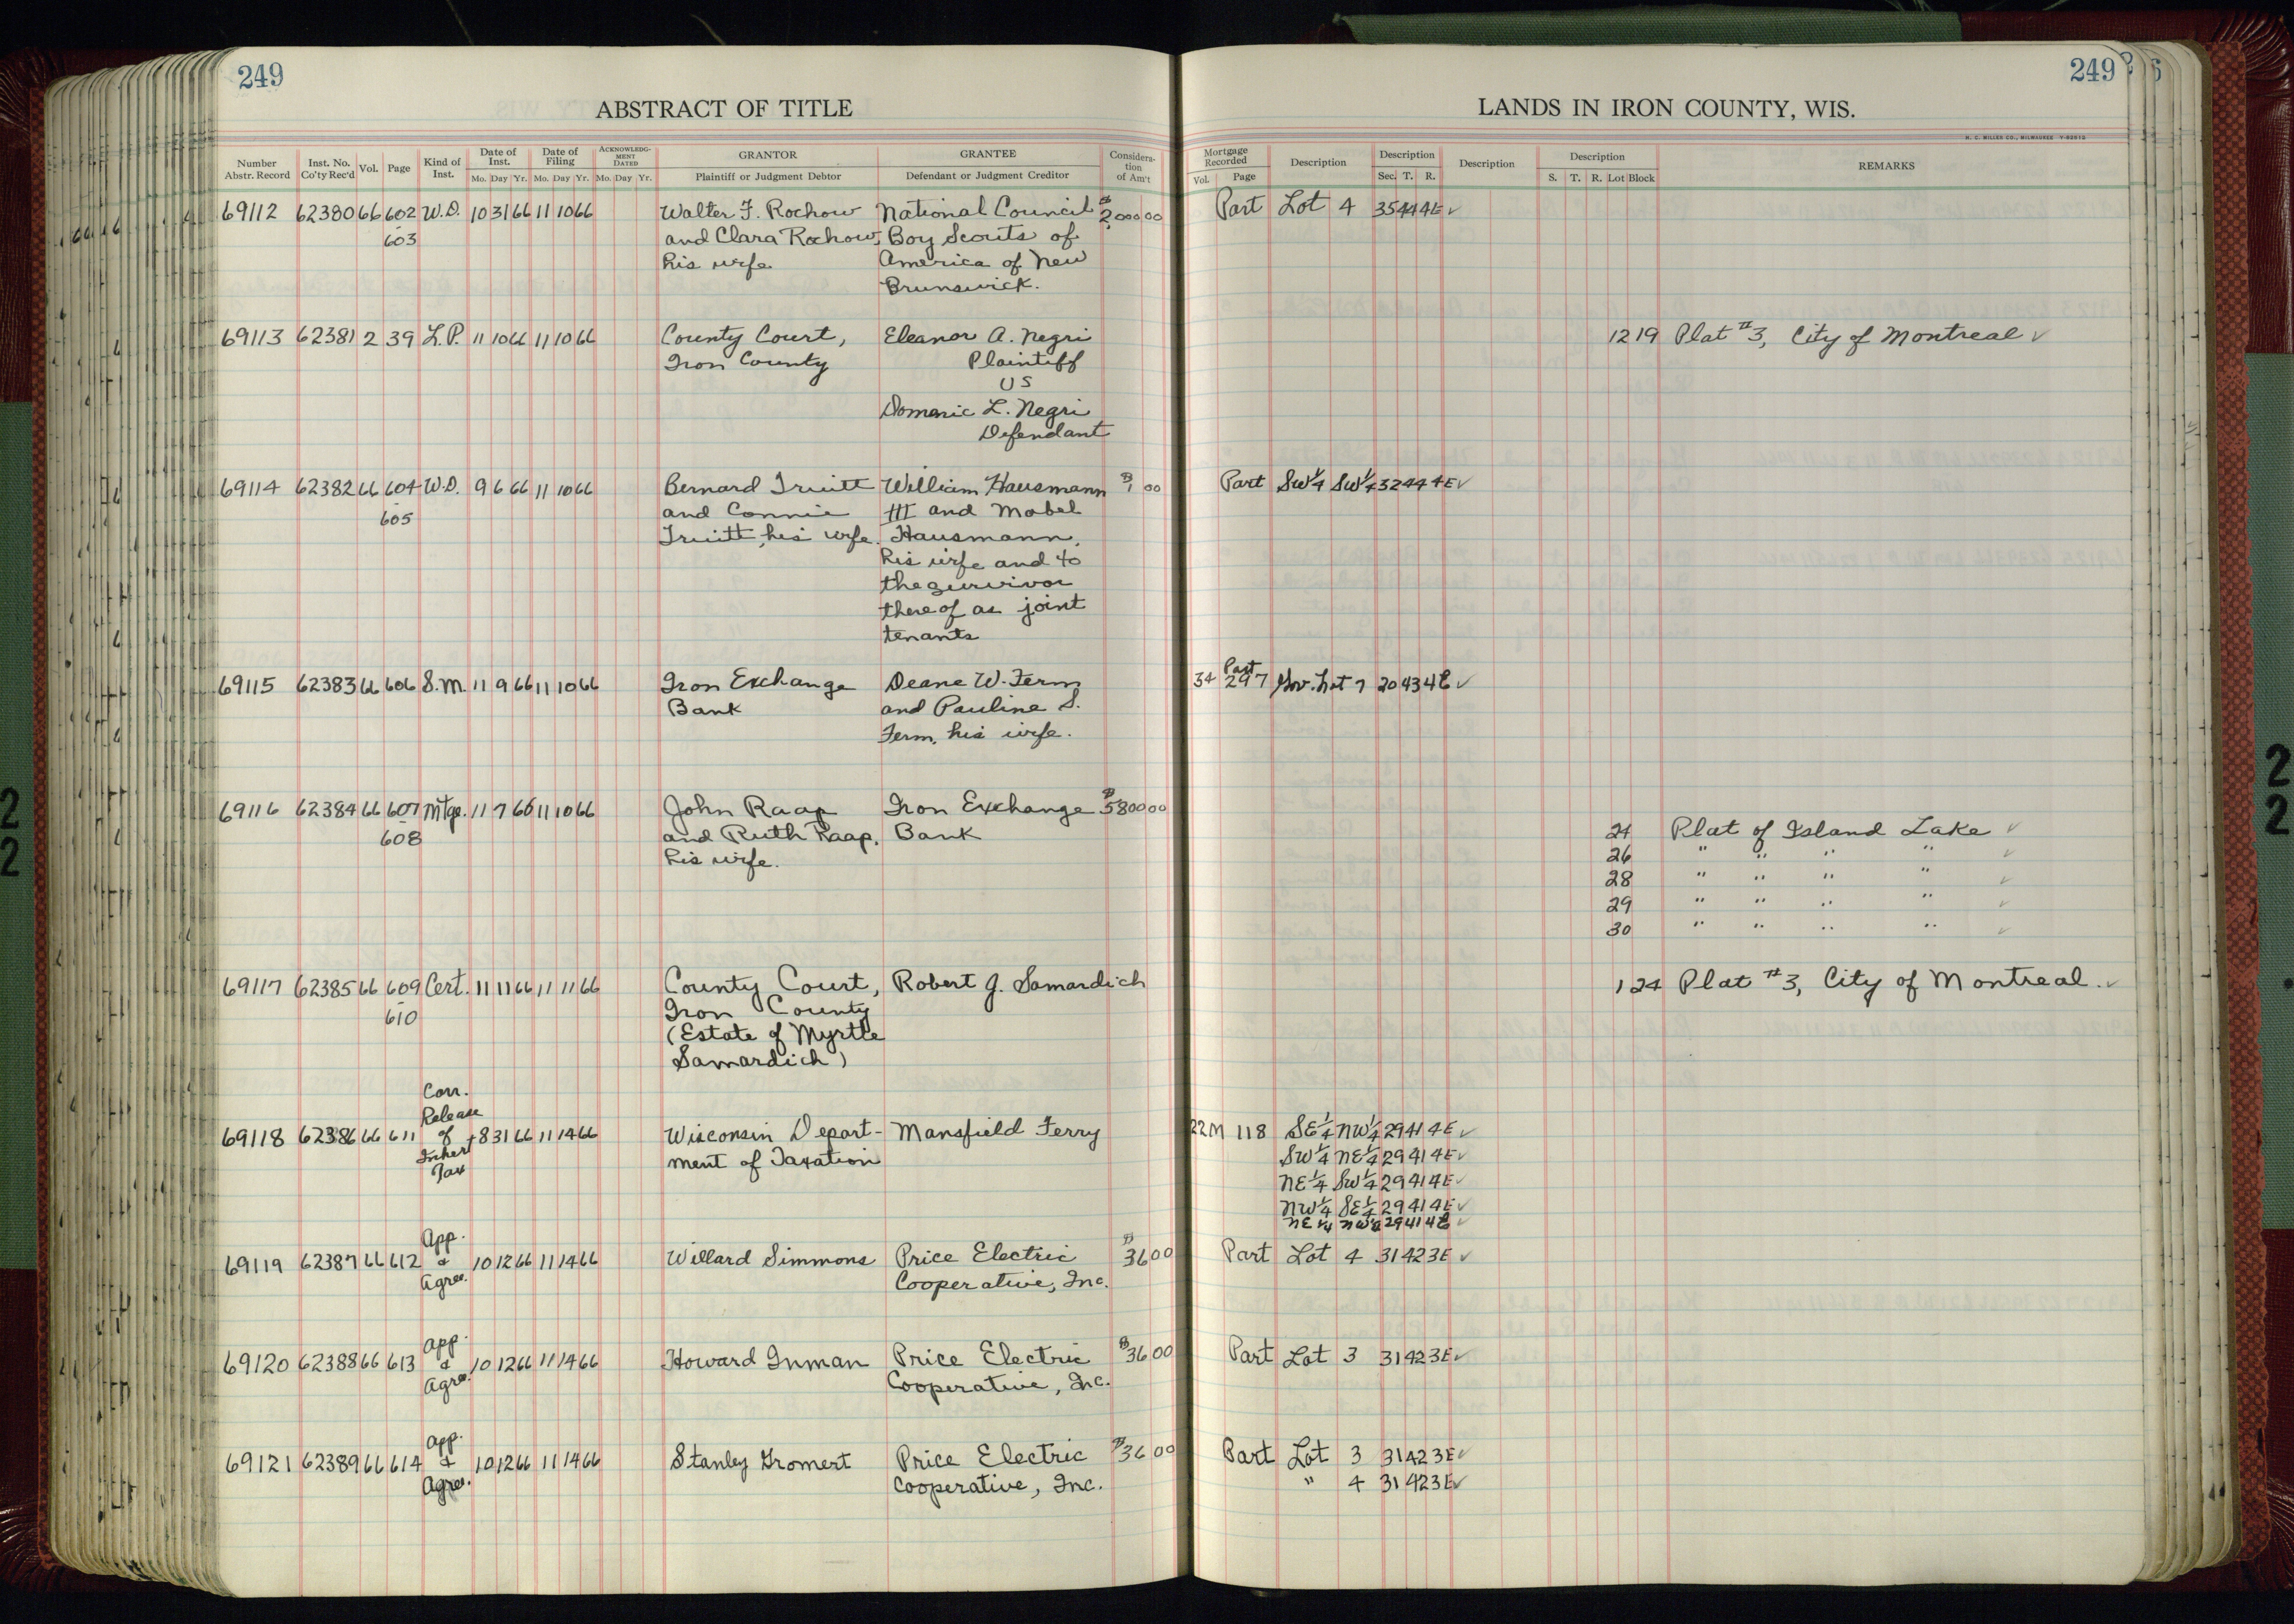 249
ABSTRACT OF TITLE
Number Abstr. Record Inst. No. Co'ty Rec'd Vol. Page Kind of Inst. Date of Inst. Date of Filing ACKNOWLEDGMENT DATED GRANTOR GRANTEE Consideration of Am't
Mo. Day Yr. Mo. Day Yr. Mo. Day Yr. Plaintiff or Judgment Debtor Defendant or Judgment Creditor
69112 62380 66 602 W.D. 10 31 66 11 10 66 Walter F. Rochow National Council $2,000 00
603 and Clara Rochow, Boy Scouts of
his wife. America of New
Brunswick.
69113 62381 2 39 L.P. 11 10 66 11 10 66 County Court, Eleanor A. Negri
Iron County Plaintiff
vs
Domenic L. Negri
Defendant
69114 62382 66 604 W.D. 9 6 66 11 10 66 Bernard Truitt William Hausmann $1 00
605 and Connie III and Mabel
Truitt, his wife. Hausmann,
his wife and to
the survivor
thereof as joint
tenants
69115 62383 66 606 S.M. 11 9 66 11 10 66 Iron Exchange Deane W. Ferm
Bank and Pauline S.
Ferm, his wife.
69116 62384 66 607 Mtge. 11 7 66 11 10 66 John Raap Iron Exchange $5800 00
608 and Ruth Raap, Bank
his wife.
69117 62385 66 609 Cert. 11 11 66 11 11 66 County Court, Robert J. Samardich
610 Iron County
(Estate of Myrtle
Samardich)
Corr.
Release
69118 62386 66 611 of 8 31 66 11 14 66 Wisconsin Depart- Mansfield Ferry
Inhert ment of Taxation
Tax
App.
69119 62387 66 612 & 10 12 66 11 14 66 Willard Simmons Price Electric $36 00
Agree. Cooperative, Inc.
App.
69120 62388 66 613 & 10 12 66 11 14 66 Howard Inman Price Electric $36 00
Agree. Cooperative, Inc.
App.
69121 62389 66 614 & 10 12 66 11 14 66 Stanley Gromert Price Electric $36 00
Agree. Cooperative, Inc.
249
LANDS IN IRON COUNTY, WIS.
H. C. MILLER CO., MILWAUKEE
Mortgage Recorded Description Description Description Description REMARKS
Vol. Page Sec. T. R. S. T. R. Lot Block
Part Lot 4 35 44 4E ✓
12 19 Plat #3, City of Montreal ✓
Part SW¼ SW¼ 32 44 4E ✓
Part
34 297 Gov. Lot 7 20 43 4E ✓
24 Plat of Island Lake ✓
26 " " " " ✓
28 " " " " ✓
29 " " " " ✓
30 " " " " ✓
1 24 Plat #3, City of Montreal. ✓
22M 118 SE¼ NW¼ 29 41 4E ✓
SW¼ NE¼ 29 41 4E ✓
NE¼ SW¼ 29 41 4E ✓
NW¼ SE¼ 29 41 4E ✓
NE¼ NW¼ 29 41 4E ✓
Part Lot 4 31 42 3E ✓
Part Lot 3 31 42 3E ✓
Part Lot 3 31 42 3E ✓
" 4 31 42 3E ✓
2
2
2
2